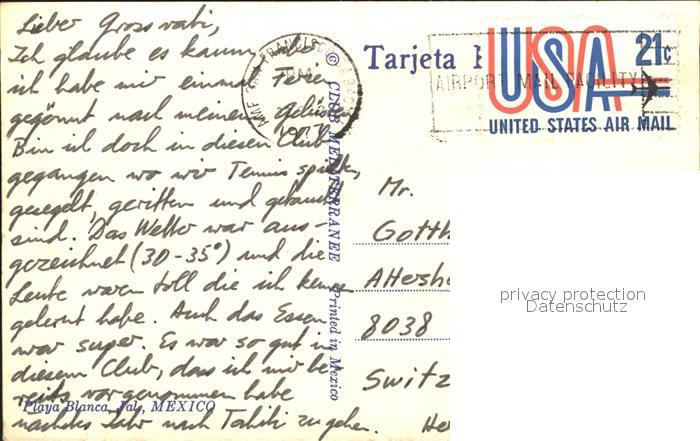 Lieber Grossvati,
Ich glaube es kaum, aber
ich habe mir einmal Ferien
gegönnt nach meinen Gelüsten
Bin ich doch in diesen Club
gegangen wo wir Tennis spielten,
gesegelt, geritten und getaucht
sind. Das Wetter war aus-
gezeichnet (30-35°) und die
Leute waren toll die ich kennen
gelernt habe. Auch das Essen
war super. Es war so gut in
diesem Club, dass ich mir be
reits vorgenommen habe
nächstes Jahr nach Tahiti zu gehen.
Playa Blanca, Jal., MEXICO
© CLUB MEDITERRANEE Printed in Mexico
Tarjeta
SAN FRANCISCO
PM
AIRPORT MAIL FACILITY
USA 21c
UNITED STATES AIR MAIL
Mr.
Gotth
Attersh
8038
Switz
He
privacy protection
Datenschutz